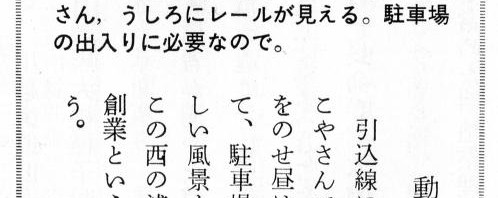 さん，うしろにレールが見える。駐車場
の出入りに必要なので。
動
引込線
こやさん
をのせ昼は
て、駐車場
しい風景
この西の
創業という
う。